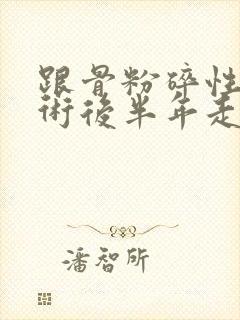 跟骨粉碎性
術後半年走
潘智所